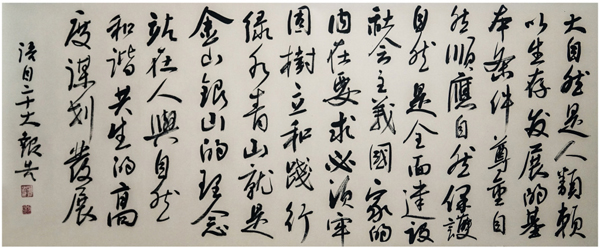 大自然是人類賴
以生存发展的基
本条件尊重自
然順應自然保護
自然是全面建设
社会主義國家的
内在要求必须牢
固樹立和踐行
绿水青山就是
金山銀山的理念
站在人與自然
和谐共生的高
度謀划發展
语自二十大報告